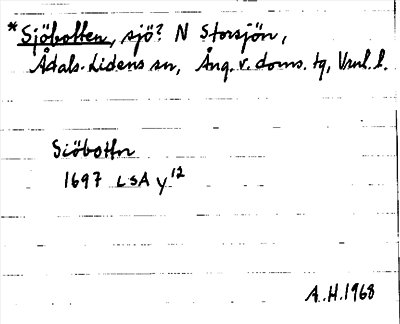 *Sjöbotten, sjö? N Storsjön,
Ådals-Lidens sn, Ång. v. doms. tg, Vnrl. l.
Siöbottn
1697 LSA y12
A.H. 1968